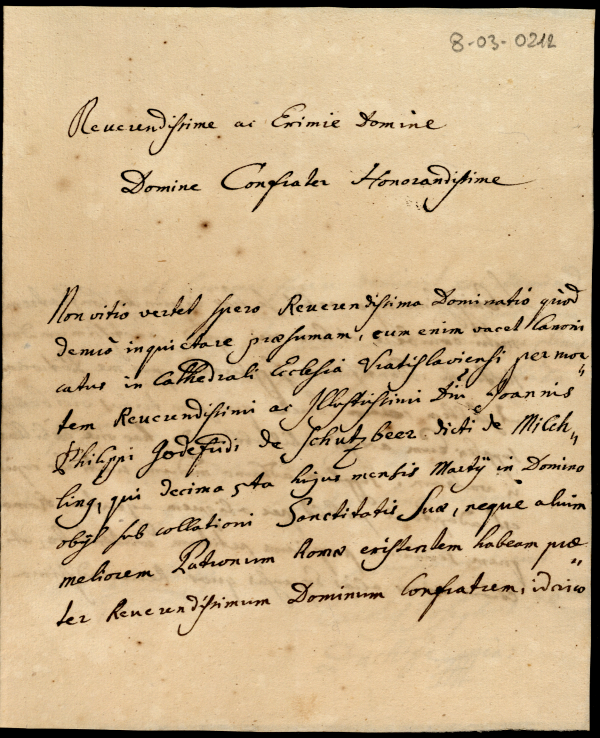 8-03-0212
Reuerendissime ac Eximie Domine
Domine Confrater Honorandissime
Non vitio vertet spero Reuerendissima Dominatio quòd
denuò inquietare præsumam, cum enim vacet Canoni
catus in Cathedrali Ecclesia Vratislaviensi per mor„
tem Reuerendissimi ac Illustrissimi Dñi Joannis
Philippi Godefridi de Schutzbeer dicti de Milch„
ling, qui decima hujus mensis Martij in Domino
obijt sub collationi Sanctitatis Suæ, neque alium
meliorem Patronum Romæ existentem habeam præ„
ter Reuerendissimum Dominum Confratrem, idcirco